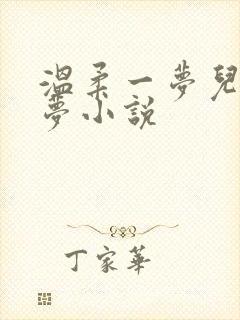 溫柔一夢兒
夢小說
丁家華